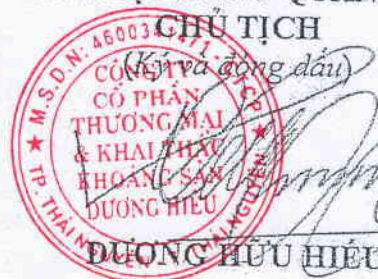 CHỦ TỊCH
(Ký và đóng dấu)
M.S.D.N: 4600
C.P
CÔNG TY
CỔ PHẦN
THƯƠNG MẠI
& KHAI THÁC
KHOÁNG SẢN
DƯƠNG HIẾU
TP. THÁI NGUYÊN
DƯƠNG HỮU HIẾU